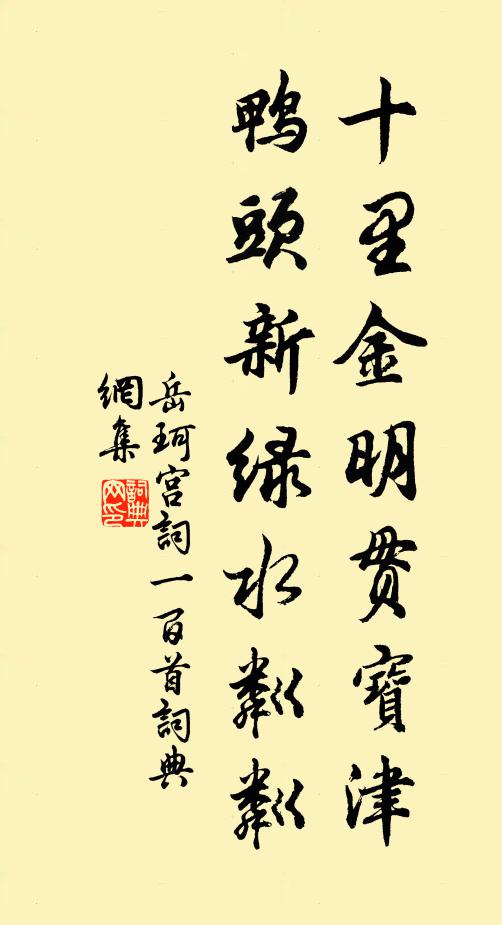 十里金明貫寶津
鴨頭新緑水粼粼
岳珂宮詞一百首詞典
網集
詞典
网印